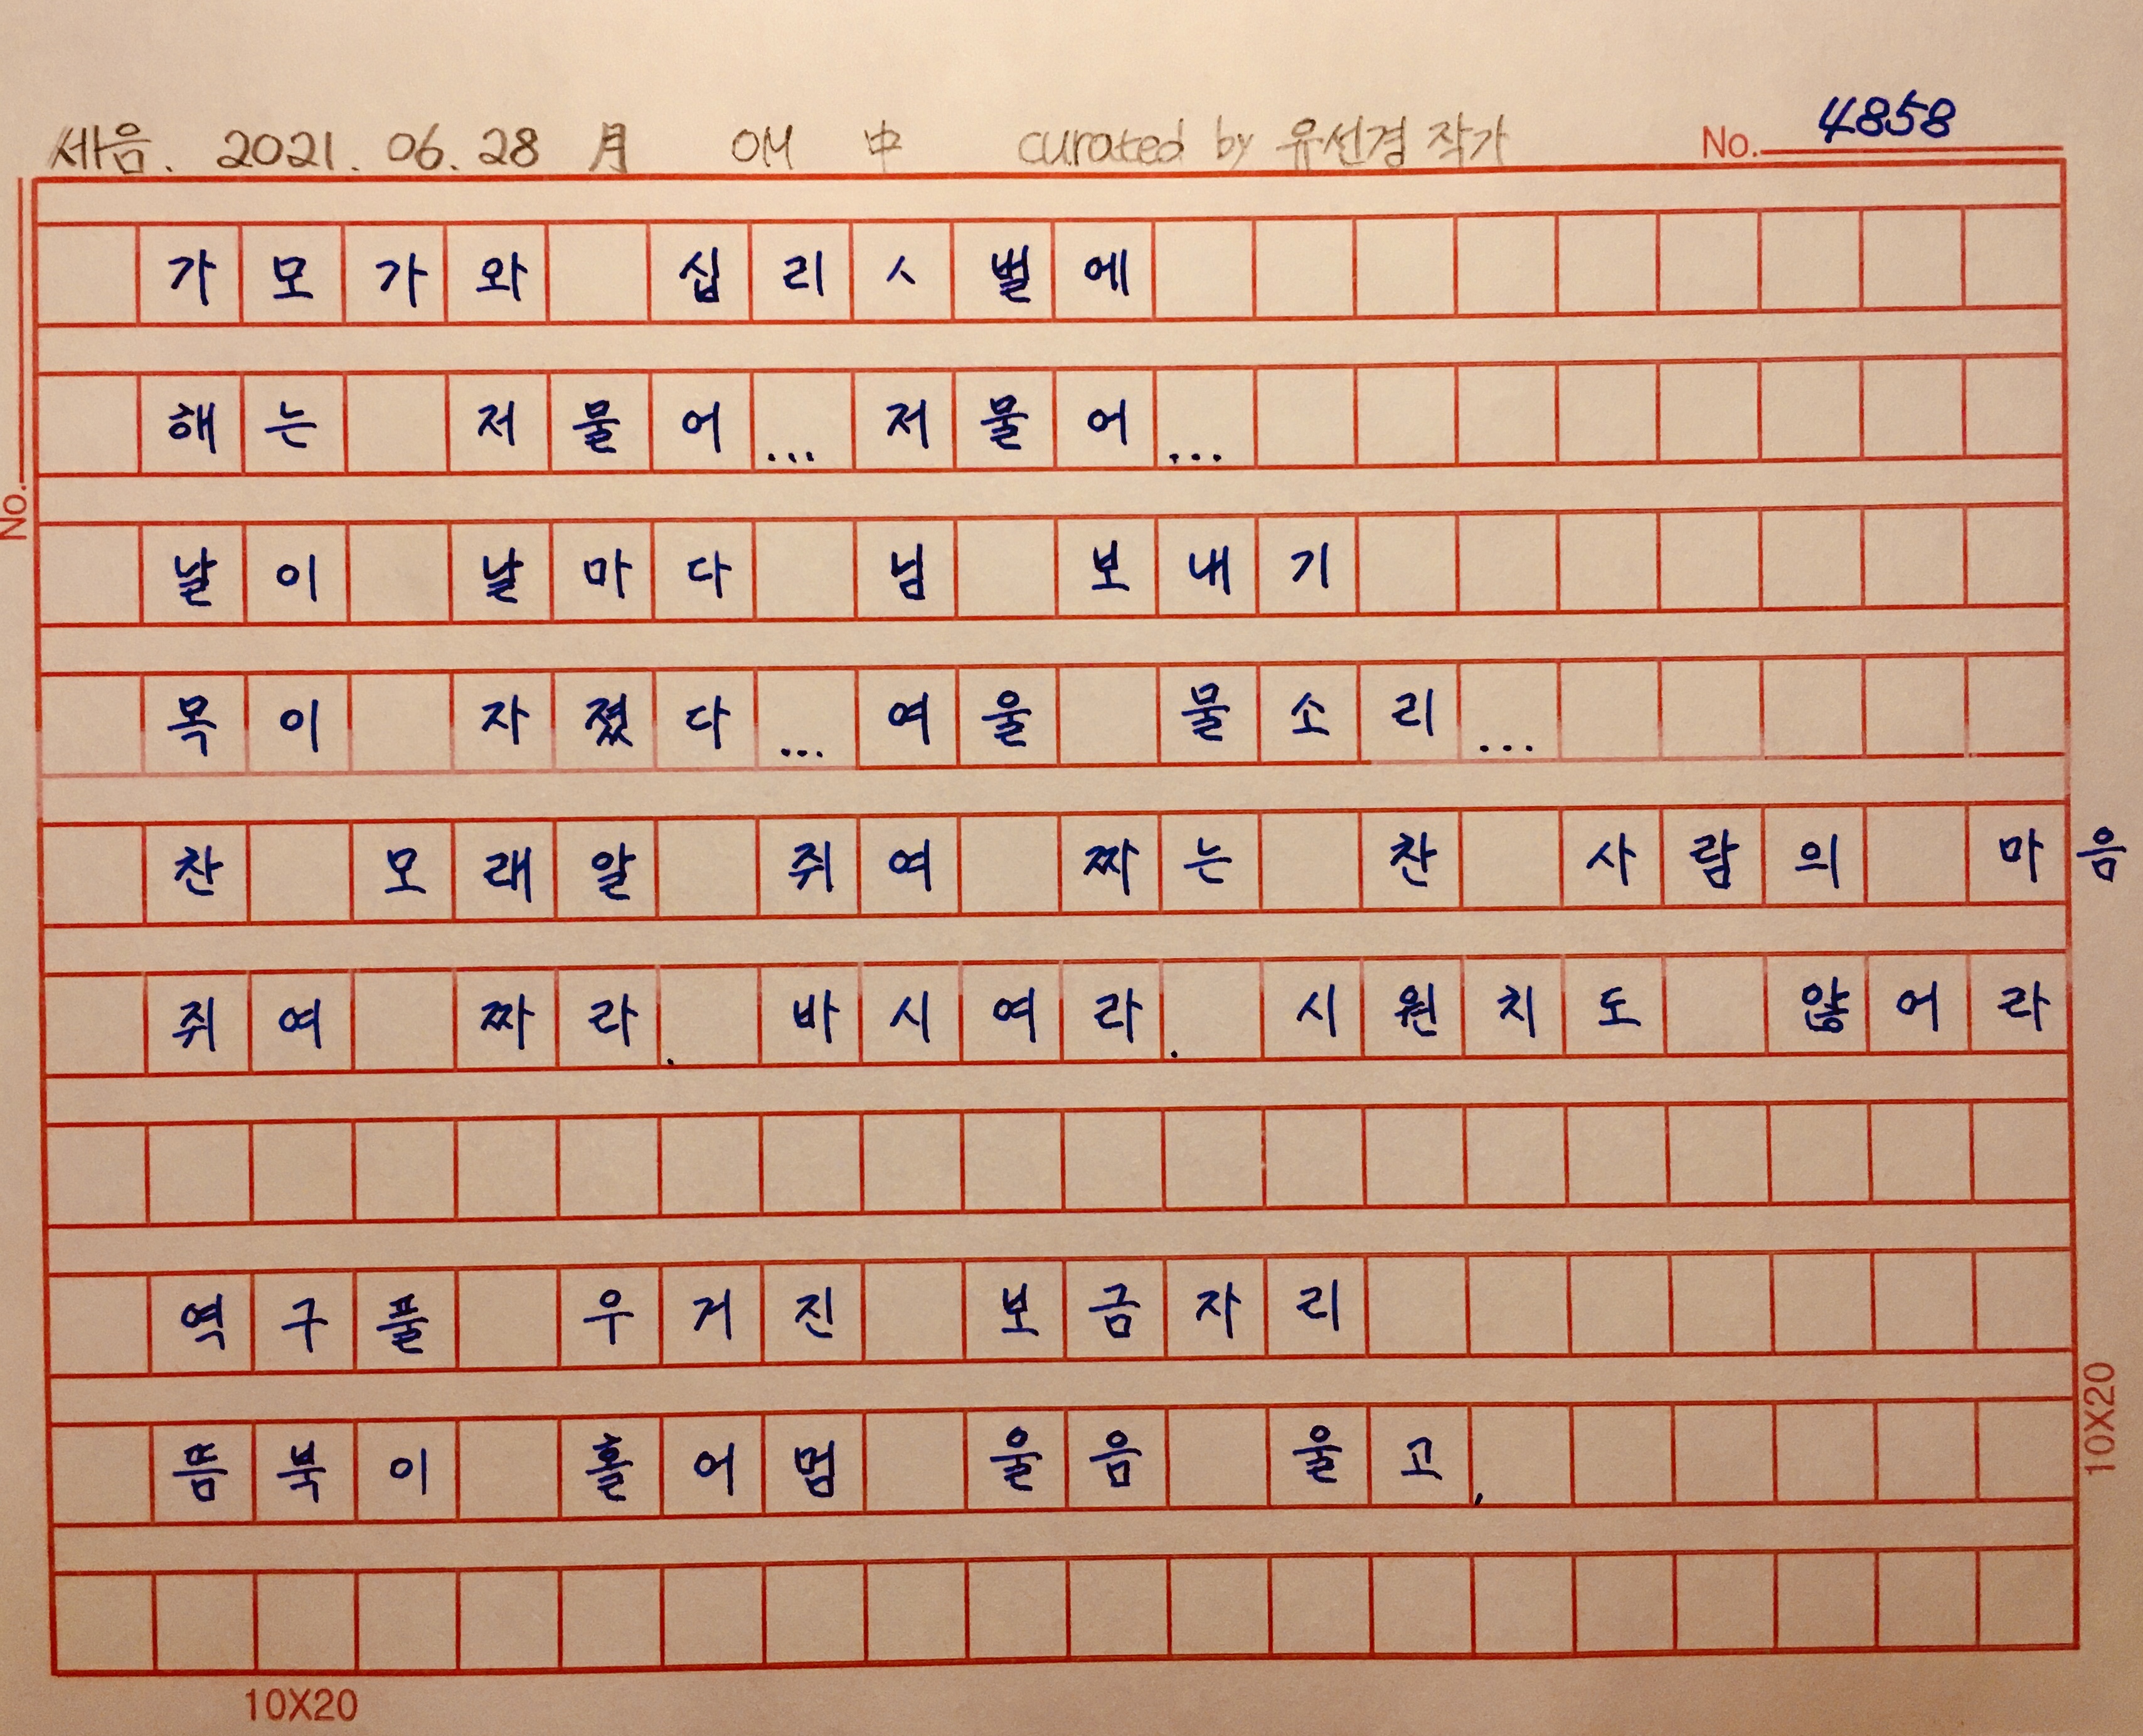 세음. 2021. 06. 28 月 OM 中 curated by 유선경 작가 No. 4858
가모가와 십리ㅅ벌에
해는 저물어... 저물어...
No.
날이 날마다 님 보내기
목이 자졌다... 여울 물소리...
찬 모래알 쥐여 짜는 찬 사람의 마음
쥐여 짜라. 바시여라. 시원치도 않어라
역구풀 우거진 보금자리
뜸북이 홀어멈 울음 울고,
10X20
10X20